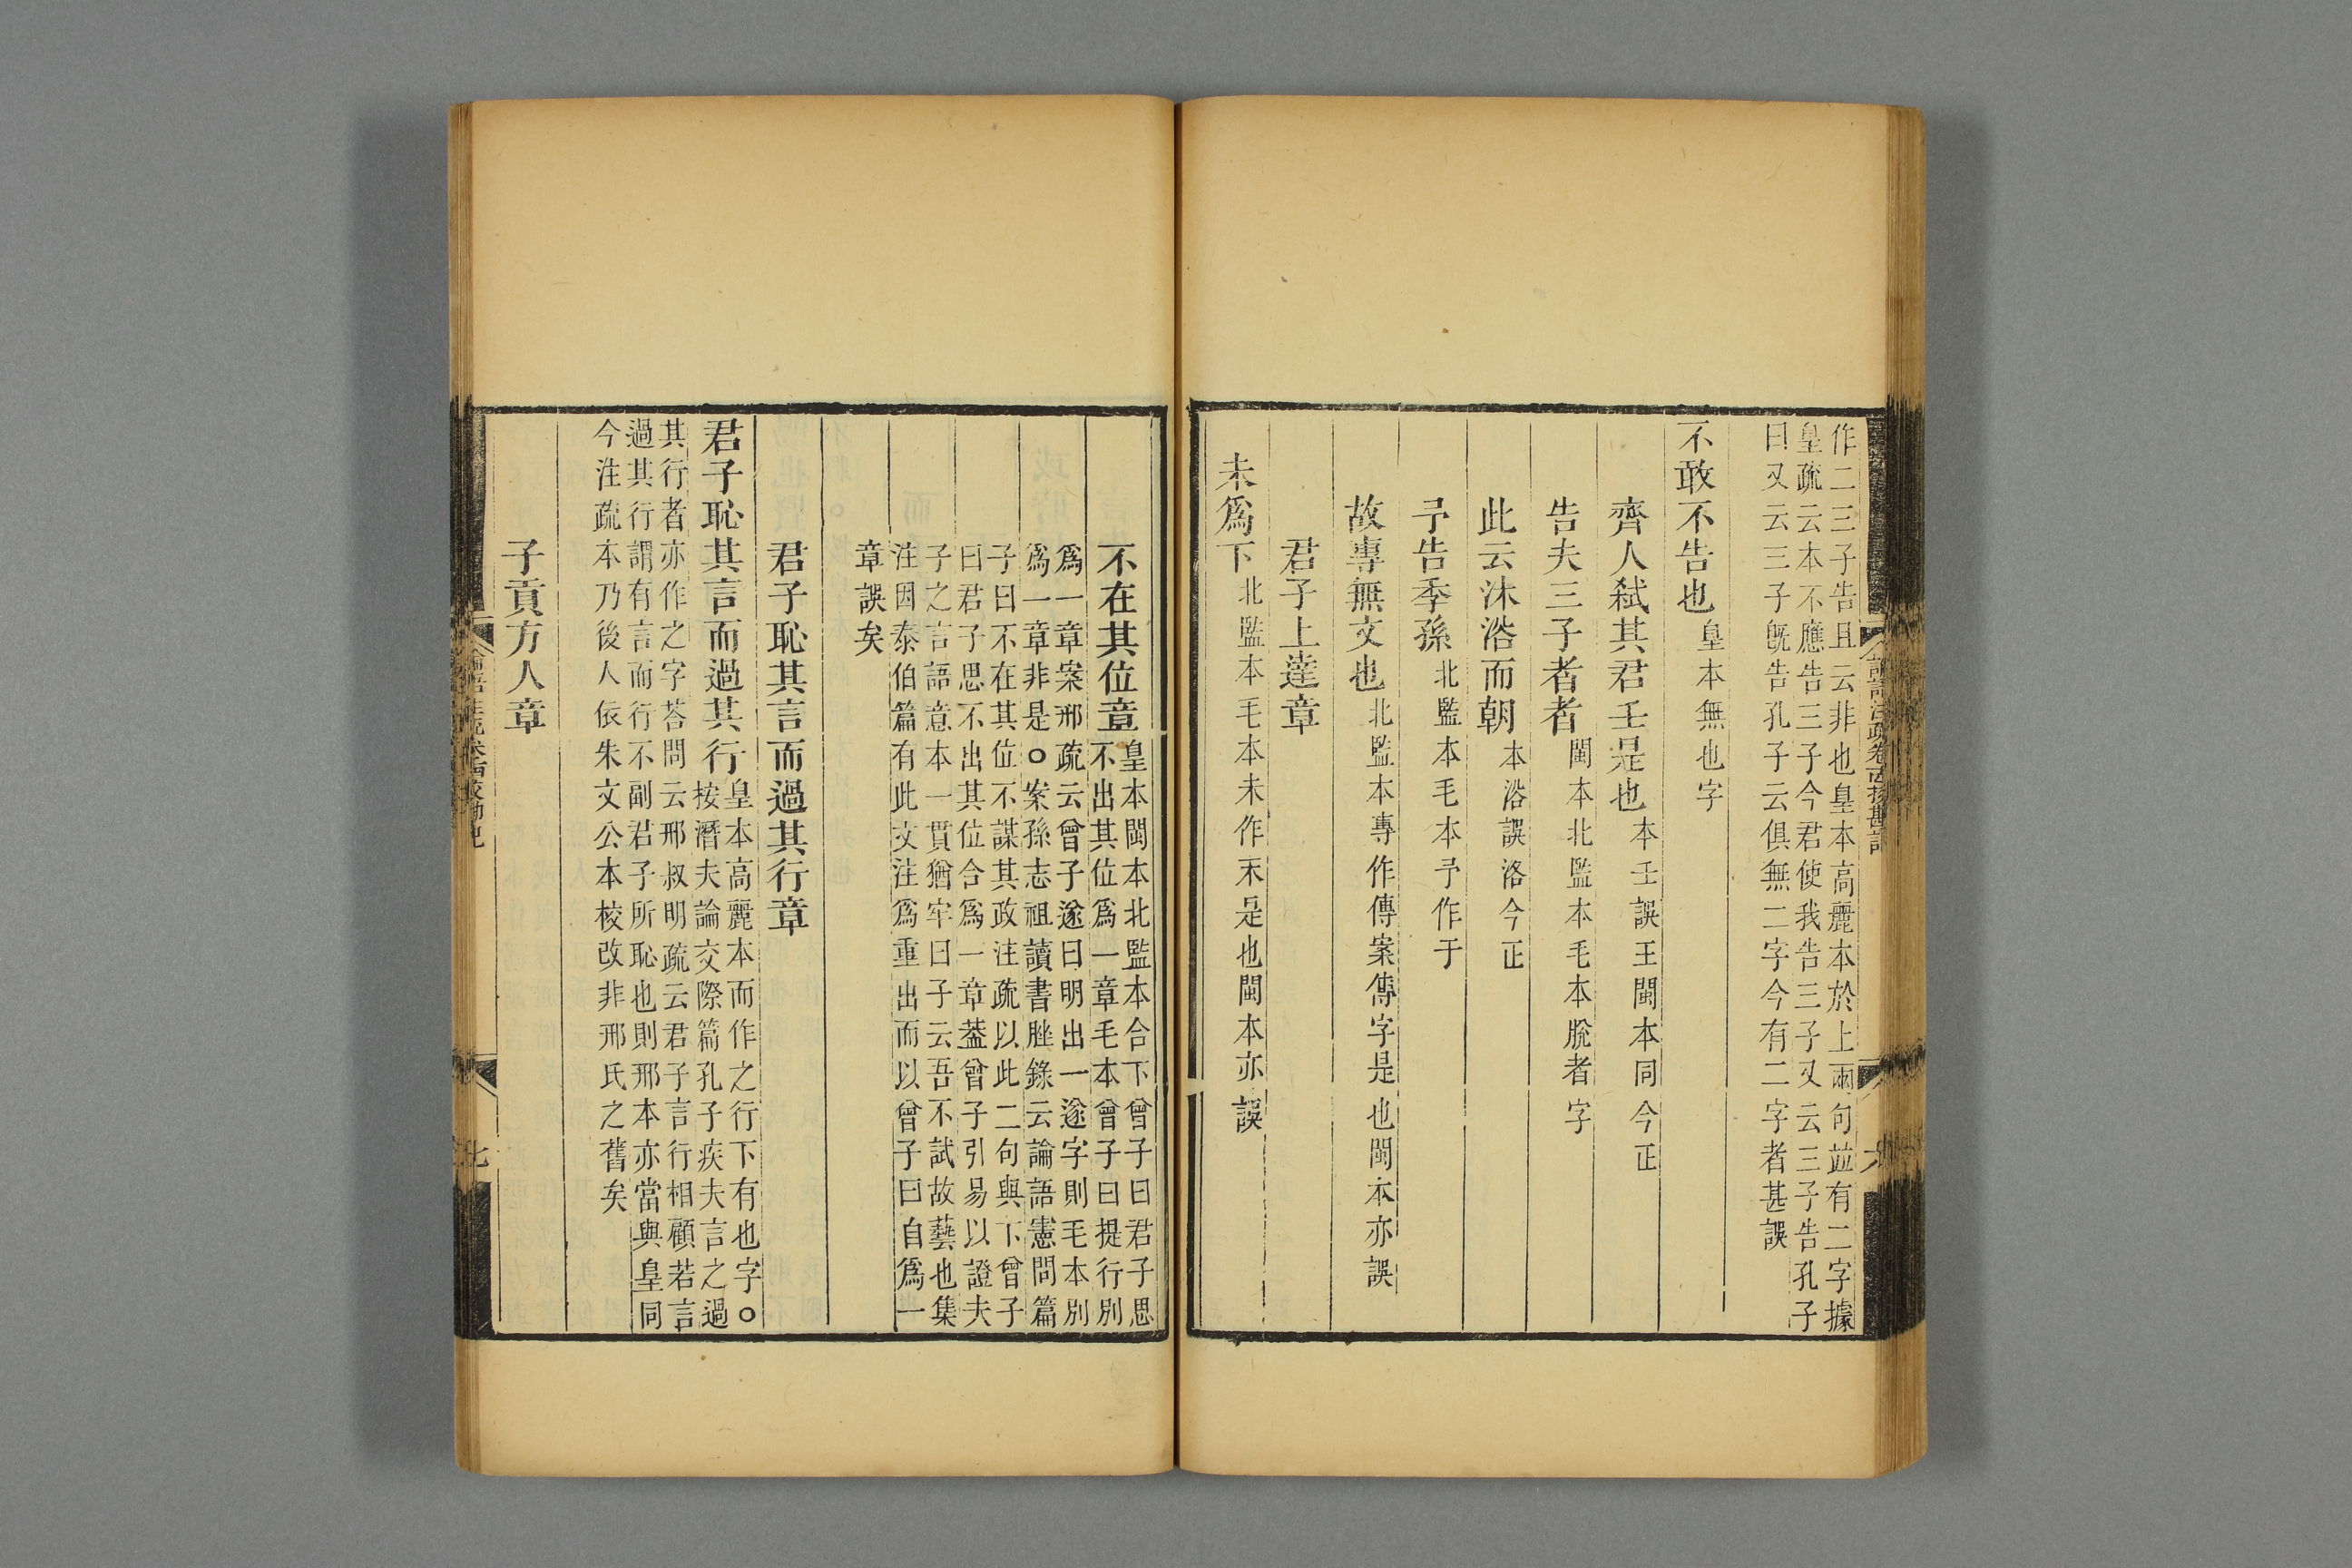 作二三子告且云非也皇本高麗本於上兩句並有二字據
皇疏云本不應告三子今君使我告三子又云三子告孔子
曰又云三子旣告孔子云俱無二字今有二字者甚誤
不敢不告也皇本無也字
齊人弑其君壬是也本壬誤王閩本同今正
告夫三子者者閩本北監本毛本脫者字
此云沐浴而朝本浴誤洛今正
予告季孫北監本毛本予作于
故專無文也北監本專作傳案傳字是也閩本亦誤
君子上達章
未爲下北監本毛本未作末是也閩本亦誤
論語注疏卷十四校勘記
六
不在其位章皇本閩本北監本合下曾子曰君子思
不出其位爲一章毛本曾子曰提行別
爲一章案邢疏云曾子遂曰明出一遂字則毛本別
爲一章非是○案孫志祖讀書脞錄云論語憲問篇
子曰不在其位不謀其政注疏以此二句與下曾子
曰君子思不出其位合爲一章葢曾子引易以證夫
子之言語意本一貫猶牢曰子云吾不試故藝也集
注因泰伯篇有此文注爲重出而以曾子曰自爲一
章誤矣
君子恥其言而過其行章
君子恥其言而過其行皇本高麗本而作之行下有也字○
按潛夫論交際篇孔子疾夫言之過
其行者亦作之字荅問云邢叔明疏云君子言行相顧若言
過其行謂有言而行不副君子所恥也則邢本亦當與皇同
今注疏本乃後人依朱文公本校改非邢氏之舊矣
子貢方人章
七